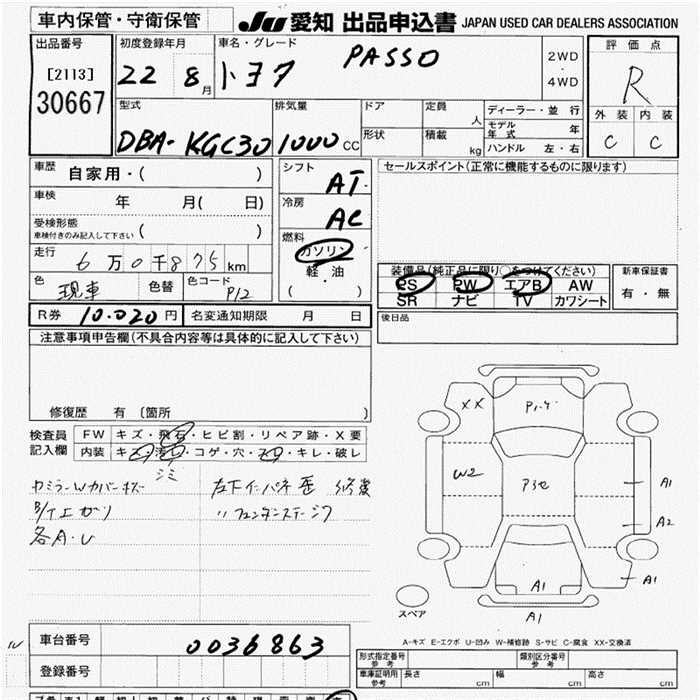 車内保管・守衛保管
JU 愛知 出品申込書 JAPAN USED CAR DEALERS ASSOCIATION
出品番号
[2113]
30667
初度登録年月
22 8月
車名・グレード
トヨタ PASSO
2WD
・
4WD
評価点
R
外装 内装
C C
型式
DBA-KGC30
排気量
1000 CC
ドア
形状
定員 人
積載 kg
ディーラー・並行
モデル年式 年
ハンドル 左・右
車歴 自家用・( )
車検 年 月( 日)
受検形態
車検付きのみ記入して下さい ( )
走行 6万0千875km
色 現車 色替 色コード P12
シフト AT
冷房 AC
燃料
ガソリン
軽・油
( )
セールスポイント(正常に機能するものに限ります)
装備品(純正品に限り○をつけてください)
PS PW エアB AW
SR ナビ TV カワシート
新車保証書
有・無
R券 10.020円 名変通知期限 月 日
後日品
注意事項申告欄(不具合内容等は具体的に記入して下さい)
修復歴 有 (箇所 )
検査員記入欄
FW キズ・飛石・ヒビ割・リペア跡・X要
内装 キズ・汚れ・コゲ・穴・・キレ・破レ
シミ
各A・U
XX
W2
A1
A2
A1
A1
A1
スペア
A-キズ E-エクボ U-凹み W-補修跡 S-サビ C-腐食 XX-交換済
車台番号 0036863
登録番号
形式指定番号 参考
類別区分番号 参考
車庫証明用 参考 長さ cm 幅 cm 高さ cm